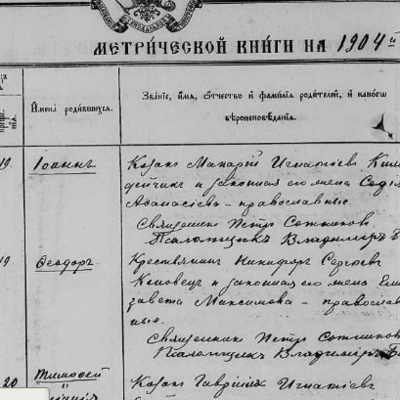 МЕТРИ́ЧЕСКОЙ КНИ́ГИ НА 1904й
Имена̀ роди́вшихся.
Зва́нїе, и́мя, о́тчество и҆ фами́лїя роди́телей, и҆ како́гѡ
вѣроисповѣ́данїя.
19 Іоаннъ Козакъ Макарій Игнатіевъ
и законная его жена Софія
Аѳанасіева - православные.
Священникъ Петръ Сотников
Псаломщикъ Владиміръ
19 Ѳеодоръ Крестьянинъ Никифоръ Сергѣевъ
и законная его жена Ели
завета Максимова - православ
ные.
Священникъ Петръ Сотников
Псаломщикъ Владиміръ
20 Тимоѳей Козакъ Гавріилъ Игнатіевъ